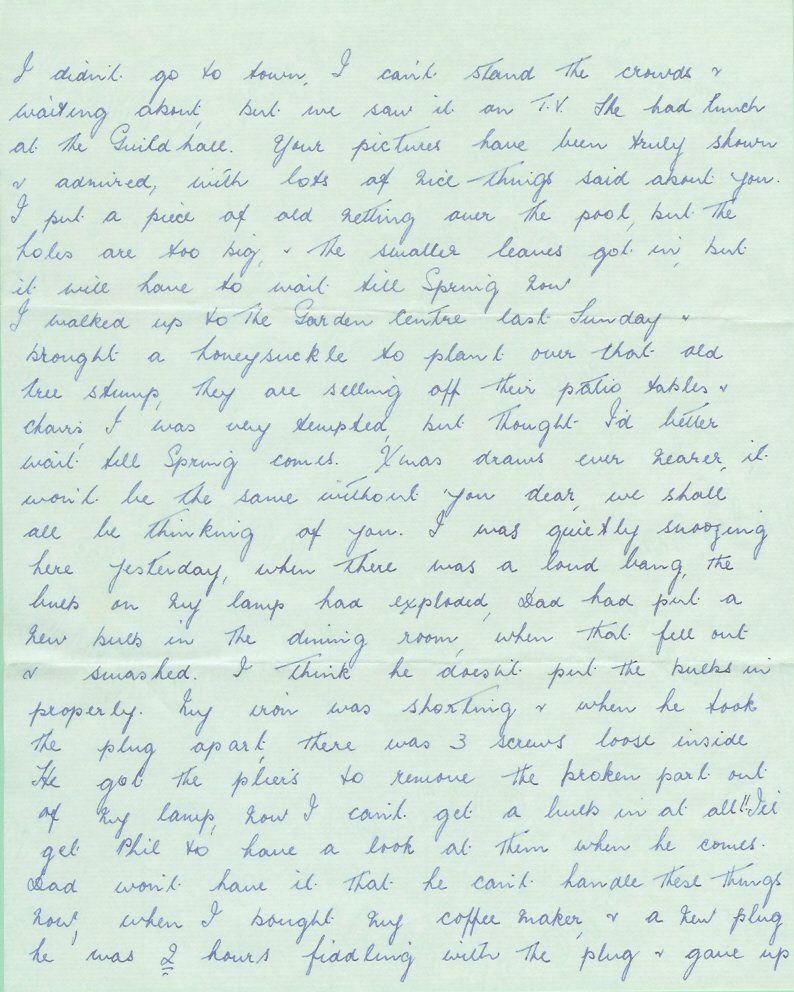 I didn't go to town, I can't stand the crowds &
waiting about, but we saw it on T.V. She had lunch
at the Guildhall. Your pictures have been truly shown
& admired, with lots of nice things said about you.
I put a piece of old netting over the pool, but the
holes are too big, & the smaller leaves got in, but
it will have to wait till Spring now
I walked up to the Garden Centre last Sunday &
brought a honeysuckle to plant over that old
tree stump, they are selling off their patio tables &
chairs, I was very tempted, but thought I'd better
wait till Spring comes. Xmas draws ever nearer, it
won't be the same without you dear, we shall
all be thinking of you. I was quietly snoozing
here yesterday, when there was a loud bang, the
bulb on my lamp had exploded, Dad had put a
new bulb in the dining room, when that fell out
& smashed. I think he doesn't put the bulbs in
properly. My iron was shorting & when he took
the plug apart, there was 3 screws loose inside
He got the pliers to remove the broken part out
of my lamp, now I can't get a bulb in at all!! I'll
get Phil to have a look at them when he comes.
Dad won't have it that he can't handle these things
now, when I bought my coffee maker, & a new plug
he was 2 hours fiddling with the plug & gave up